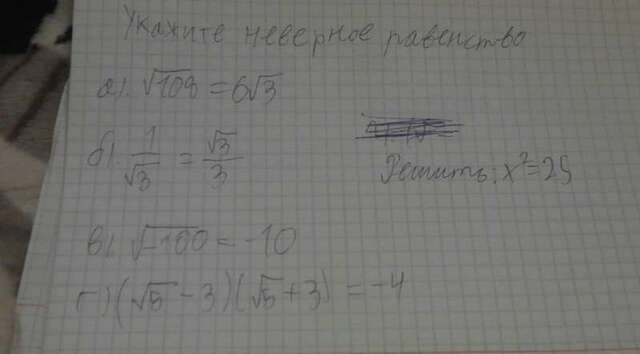 Укажите неверное равенство
а). √108 = 6√3
б). 1/√3 = √3/3
Решить: x²=25
в). √-100 = -10
г) (√5 - 3)(√5 + 3) = -4